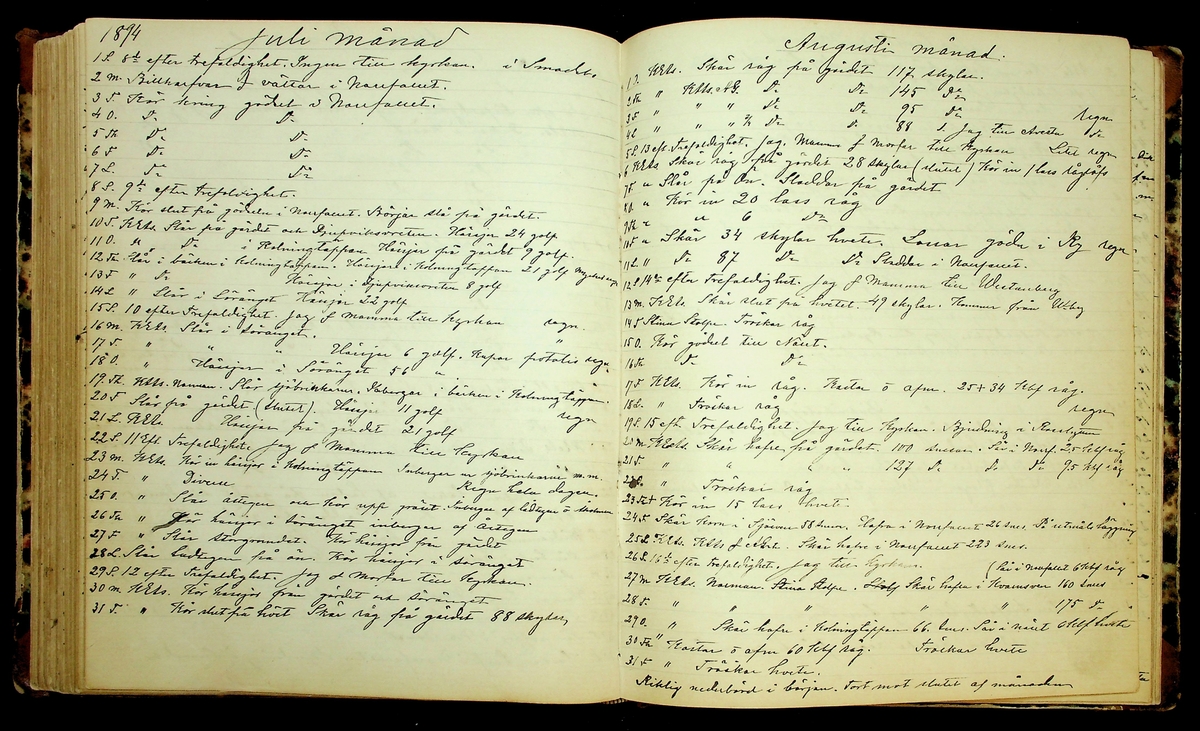 1894 Juli månad
1 S. 8de efter Trefaldighet. Ingen till Kyrkan. i Smedbo
2 M. Billharfvar f vältar i Norrfallet.
3 T. Kör kring gödel i Norrfallet.
4 O. Do Do
5 Th Do Do
6 F Do Do
7 L. Do Do
8 S. 9de efter Trefaldighet.
9 M. Kör slut på gödseln i Norrfallet. Börjar slå på gärdet.
10 T. KEts. Slår på gärdet och Djupviksvreten. Hässjer 24 golf
11 O. " Do i Holmingtäppan Hässjer på gärdet 9 golf.
12 Th Slår i backen i Holmingtäppan. Hässjer i Holmingtäppan 21 golf mycket regn
13 F " Do Hässjer i Djupviksvreten 8 golf
14 L " Slår i Söränget Hässjer 22 golf
15 S. 10 efter Trefaldighet. Jag f Mamma till Kyrkan regn.
16 M. KEts Slår i Söränget. "
17 T. " " " Hässjer 6 golf. Kupar potatis regn.
18 O. " Hässjer i Söränget 56 "
19 Th. KEts. Norman. Slår sjöbrinkarne. Inbergar i backen i Holmingtäppan.
20 F Slår på gärdet (Slutet). Hässjer 11 golf regn
21 L. KEts Hässjer på gärdet 21 golf
22 S. 11 Eft. Trefaldighet. Jag f Mamma till Kyrkan
23 M. KEts. Kör in hässjor i Holmingtäppan Inbergar sjöbrinkarne m.m.
24 T. " Diverse Regn hela dagen.
25 O. " Slår ättegen och Kör upp gräset. Inbergar af ladtegen
26 Th " Kör hässjor i Söränget inbergar af Ättegen
27 F " Slår Storgrundet. Kör hässjor från gärdet
28 L. Slår Ladtegen på ön. Kör hässjor i Söränget
29 S. 12 efter Trefaldighet. Jag o Morbar till Kyrkan.
30 M. KEts. Kör hässjor från gärdet och Söränget
31 T. " Kör slut på höet Skär råg på gärdet 88 skylar,
Augusti månad.
1 O. KEts. Skär råg på gärdet 117 skylar.
2 Th " KEts. AG. Do Do 145 Do
3 F " " " Do Do 95 Do regn
4 L " " " ½ Do Do 88 s. Jag till Avesta Do
5 S. 13 eft. Trefaldighet. Jag, Mamma f Morfar till Kyrkan Litet regn
6 KEts Skär råg på gärdet 28 skylar (slutet) Kör in 1 lass
7 T. " Slår på Ön. Sladdar på gärdet
8 O. " Kör in 20 lass råg
9 Th " " 6 Do
10 F " Skär 34 skylar hvete. Lassar göde i Ry regn
11 L " Do 87 Do Do Sladdar i Norrfallet.
12 S 14de efter Trefaldighet. Jag f Mamma till Westanberg
13 M. KEts Skär slut på hvetet 49 skylar. Kommer från Utby
14 T Stina Stolpe. Tröskar råg
15 O. Kör gödsel till Näset.
16 Th Do Do
17 F. KEts. Kör in råg. Kastar ö afm. 25+34 Hlf råg.
18 L. " Tröskar råg regn
19 S. 15 eft. Trefaldighet. Jag till Kyrkan.
20 M. KEts. Skär hafre på gärdet. 100 snesar. Sår i Norrf. 25 Hlf råg
21 T. " " " " 127 Do Do Do 95 Hlf råg
22 O. " Tröskar råg
23 Th + Kör in 15 lass hvete.
24 F. Skär Korn i Sjövren 58 snes. Hafre i Norrfallet 26 snes.
25 L KEts. KEts f Albert. Skär hafre i Norrfallet 223 snes.
26 S. 16de efter Trefaldighet. Jag till Kyrkan. (Sår i Norrfallet 6 Hlf råg
27 M KEts. Norman. Stina Stolpe. Skär hafre i Kvarnsven 160 snes
28 T. " " " " " " 175 Do
29 O. " Skär hafre i Holmingtäppan 66. Snes. Sår i näset 6 Hlf hvete
30 Th " Kastar ö afm 60 Hlf råg. Tröskar hvete
31 F " Tröskar hvete.
Riklig nederbörd i början. Tort mot slutet af månaden